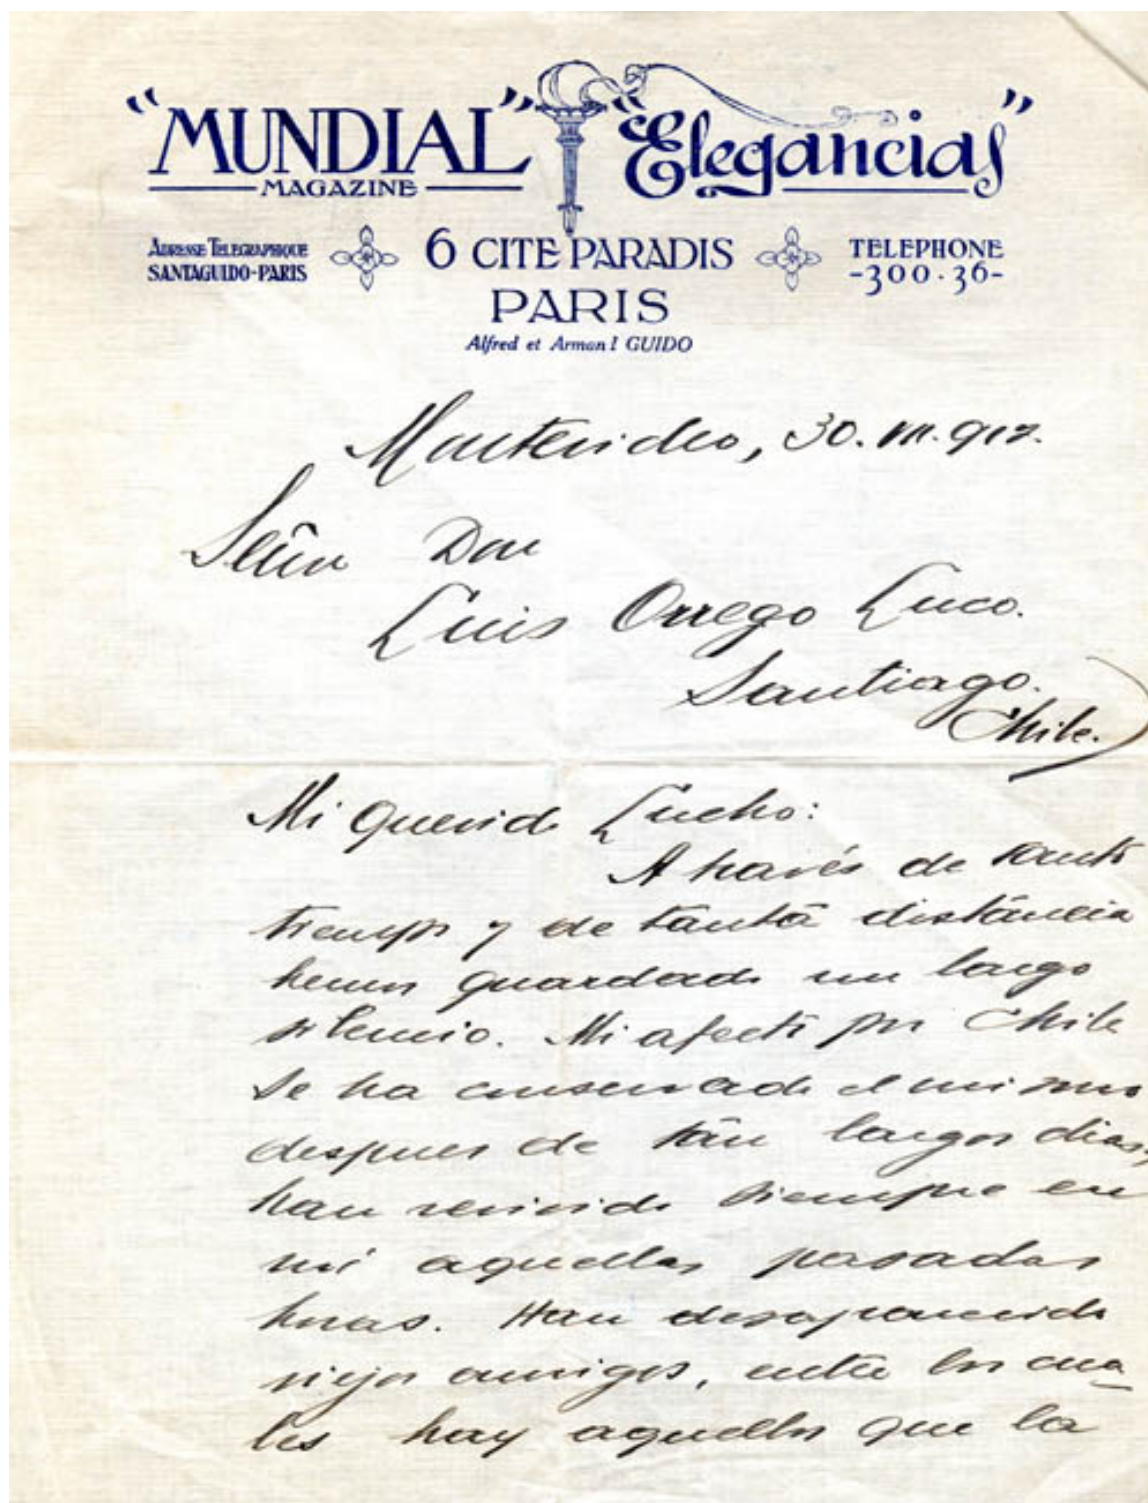 "MUNDIAL" "Elegancias"
MAGAZINE
ADRESSE TELEGRAPHIQUE
SANTAGUIDO-PARIS
6 CITE PARADIS
TELEPHONE
-300.36-
PARIS
Alfred et Armand GUIDO
Montevideo, 30. VII. 912.
Señor Don
Luis Orrego Luco.
Santiago.
Chile.
Mi querido Lucho:
A través de tanto
tiempo y de tanta distancia
hemos guardado un largo
silencio. Mi afecto por Chile
se ha conservado el mismo
despues de tan largos dias,
han revivido siempre en
mi aquellas pasadas
horas. Han desaparecido
viejos amigos, entre los cua-
les hay aquellos que la